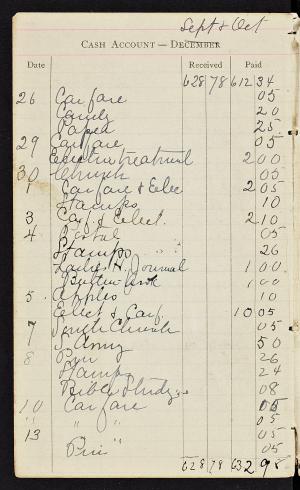 Sept & Oct
CASH ACCOUNT — DECEMBER
Date Received Paid
628 78 612 34
26 Carfare 05
Candy 20
Paper 25
29 Carfare 05
Electric treatment 2 00
30 Church 05
1 Carfare & Elec 2 05
Stamps 10
3 Carf. & Elect. 2 10
4 Postal 05
Stamps " " 26
Ladies H. Journal 1 00
1 00
5 Apples 10
Elect & Carf. 10 05
7 Church 05
S. Army 50
8 26
Stamps 24
Bible Study 08
10 Carfare 05
" " " 05
13 " " 05
Pin 05
628 78 632 98